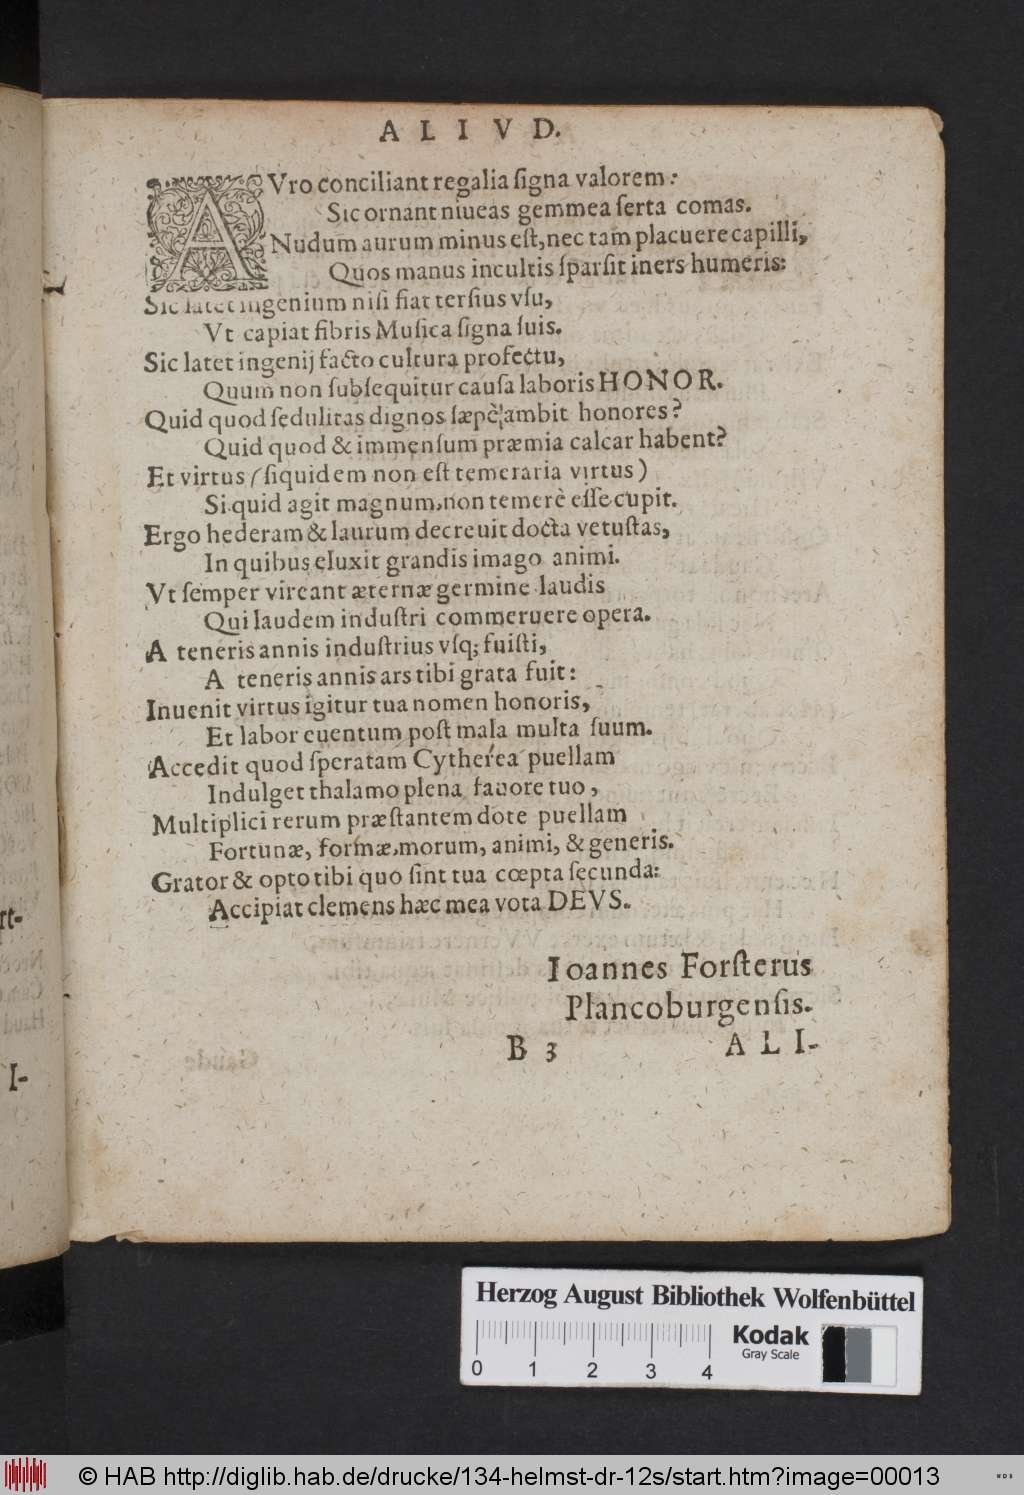 A L I V D.
AVro conciliant regalia ſigna valorem:
Sic ornant niueas gemmea ſerta comas.
Nudum aurum minus eſt, nec tam placuere capilli,
Quos manus incultis ſparſit iners humeris:
Sic latet ingenium niſi fiat terſius vſu,
Vt capiat fibris Muſica ſigna ſuis.
Sic latet ingenij facto cultura profectu,
Quum non ſubſequitur cauſa laboris HONOR.
Quid quod ſedulitas dignos ſæpè ambit honores?
Quid quod & immenſum præmia calcar habent?
Et virtus (ſiquidem non eſt temeraria virtus)
Si quid agit magnum, non temerè eſſe cupit.
Ergo hederam & laurum decreuit docta vetuſtas,
In quibus eluxit grandis imago animi.
Vt ſemper vireant æternæ germine laudis
Qui laudem induſtri commeruere opera.
A teneris annis induſtrius vſq; fuiſti,
A teneris annis ars tibi grata fuit:
Inuenit virtus igitur tua nomen honoris,
Et labor euentum poſt mala multa ſuum.
Accedit quod ſperatam Cytherea puellam
Indulget thalamo plena fauore tuo,
Multiplici rerum præſtantem dote puellam
Fortunæ, formæ, morum, animi, & generis.
Grator & opto tibi quo ſint tua cœpta ſecunda:
Accipiat clemens hæc mea vota DEVS.
Ioannes Forſterus
Plancoburgenſis.
B 3 A L I-
rt-
I-
Herzog August Bibliothek Wolfenbüttel
Kodak
Gray Scale
0 1 2 3 4
© HAB http://diglib.hab.de/drucke/134-helmst-dr-12s/start.htm?image=00013